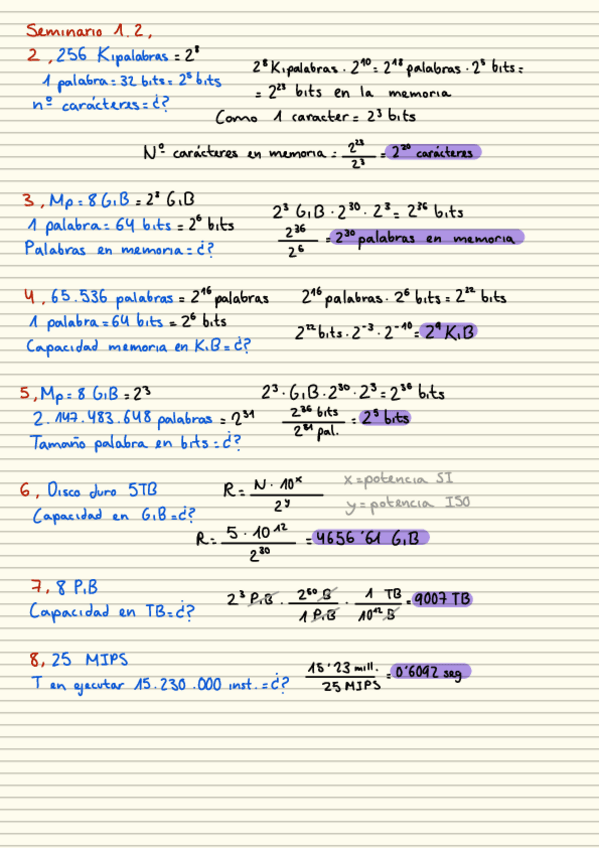 Seminario 1.2,
2, 256 Kipalabras = 2⁸
1 palabra = 32 bits = 2⁵ bits
nº carácteres = ¿?
2⁸ Kipalabras · 2¹⁰ = 2¹⁸ palabras · 2⁵ bits =
= 2²³ bits en la memoria
Como 1 caracter = 2³ bits
Nº carácteres en memoria = 2²³ / 2³ = 2²⁰ carácteres
3, Mp = 8 GiB = 2³ GiB
1 palabra = 64 bits = 2⁶ bits
Palabras en memoria = ¿?
2³ GiB · 2³⁰ · 2³ = 2³⁶ bits
2³⁶ / 2⁶ = 2³⁰ palabras en memoria
4, 65.536 palabras = 2¹⁶ palabras
1 palabra = 64 bits = 2⁶ bits
Capacidad memoria en KiB = ¿?
2¹⁶ palabras · 2⁶ bits = 2²² bits
2²² bits · 2⁻³ · 2⁻¹⁰ = 2⁹ KiB
5, Mp = 8 GiB = 2³
2.147.483.648 palabras = 2³¹
Tamaño palabra en bits = ¿?
2³ · GiB · 2³⁰ · 2³ = 2³⁶ bits
2³⁶ bits / 2³¹ pal. = 2⁵ bits
6, Disco duro 5TB
Capacidad en GiB = ¿?
R = N · 10ˣ / 2ʸ
x = potencia SI
y = potencia ISO
R = 5 · 10¹² / 2³⁰ = 4656'61 GiB
7, 8 PiB
Capacidad en TB = ¿?
2³ PiB · 2⁵⁰ B / 1 PiB · 1 TB / 10¹² B = 9007 TB
8, 25 MIPS
T en ejecutar 15.230.000 inst. = ¿?
15'23 mill. / 25 MIPS = 0'6092 seg